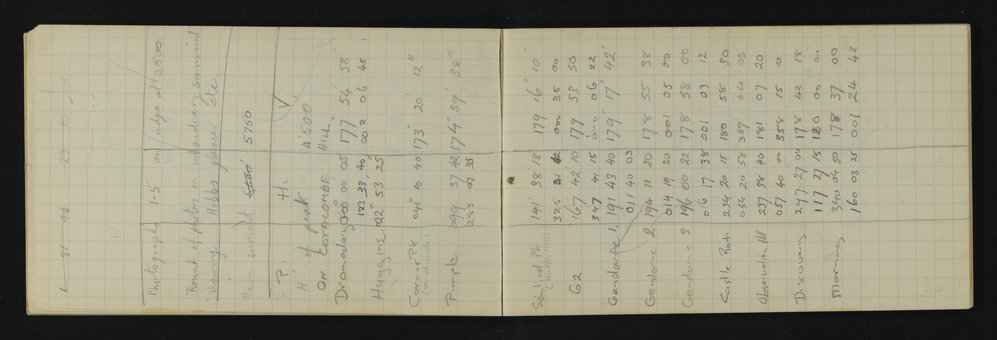 Photographs 1-5 on ridge at 13800
Round of photos on subsidiary summit
showing Hobbs glacier etc
Main summit 5750
P. H.
Ht of peak 4500
ON CATACOMB HILL
Dromedary 000 00 05 177 54' 58"
183 33 40 002 06 45
Huggins 022° 53' 25"
Corner Pk 041° 10 40 173° 20' 12"
Pimple 099 37 42 174° 39' 32"
Sentinel Pk 141° 38' 18" 179° 16' 10"
325 000 35 00
G2 167 42' 10 179 53 50
347 41 15 000 06 22
Gendarme 1. 191 43 40 179 17" 42"
011 40 03
Gendarme 2 194 11 20 178 55 38
014 19 20 001 05 00
Gendarme 3 196 00 22 178 58 00
016 17 38 001 03 12
Castle Rock 234 20 15 180 58 30
054 20 58 359 04 03
Observation Hill 237 38 40 181 07 20
057 40 00 358 15 00
Discovery 297 27 00 178 42 18
117 27 15
Morning 340 04 50 178 37 00
160 03 25 001 24 42